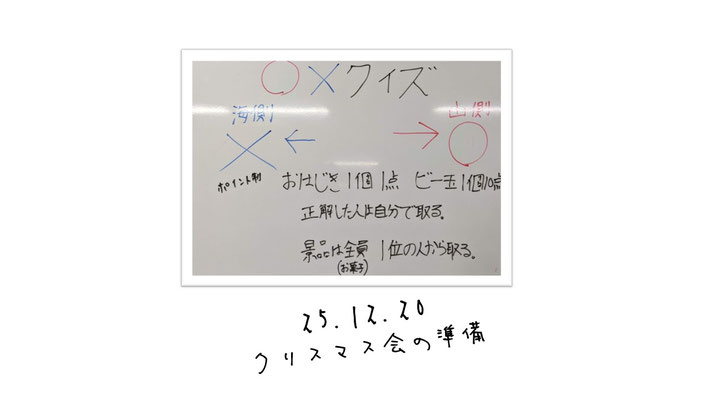 ○×クイズ
海側 山側
× ← → ○
ポイント制 おはじき1個1点 ビー玉1個10点
正解した人は自分で取る。
景品は全員 1位の人から取る。
(お菓子)
25.12.20
クリスマス会の準備